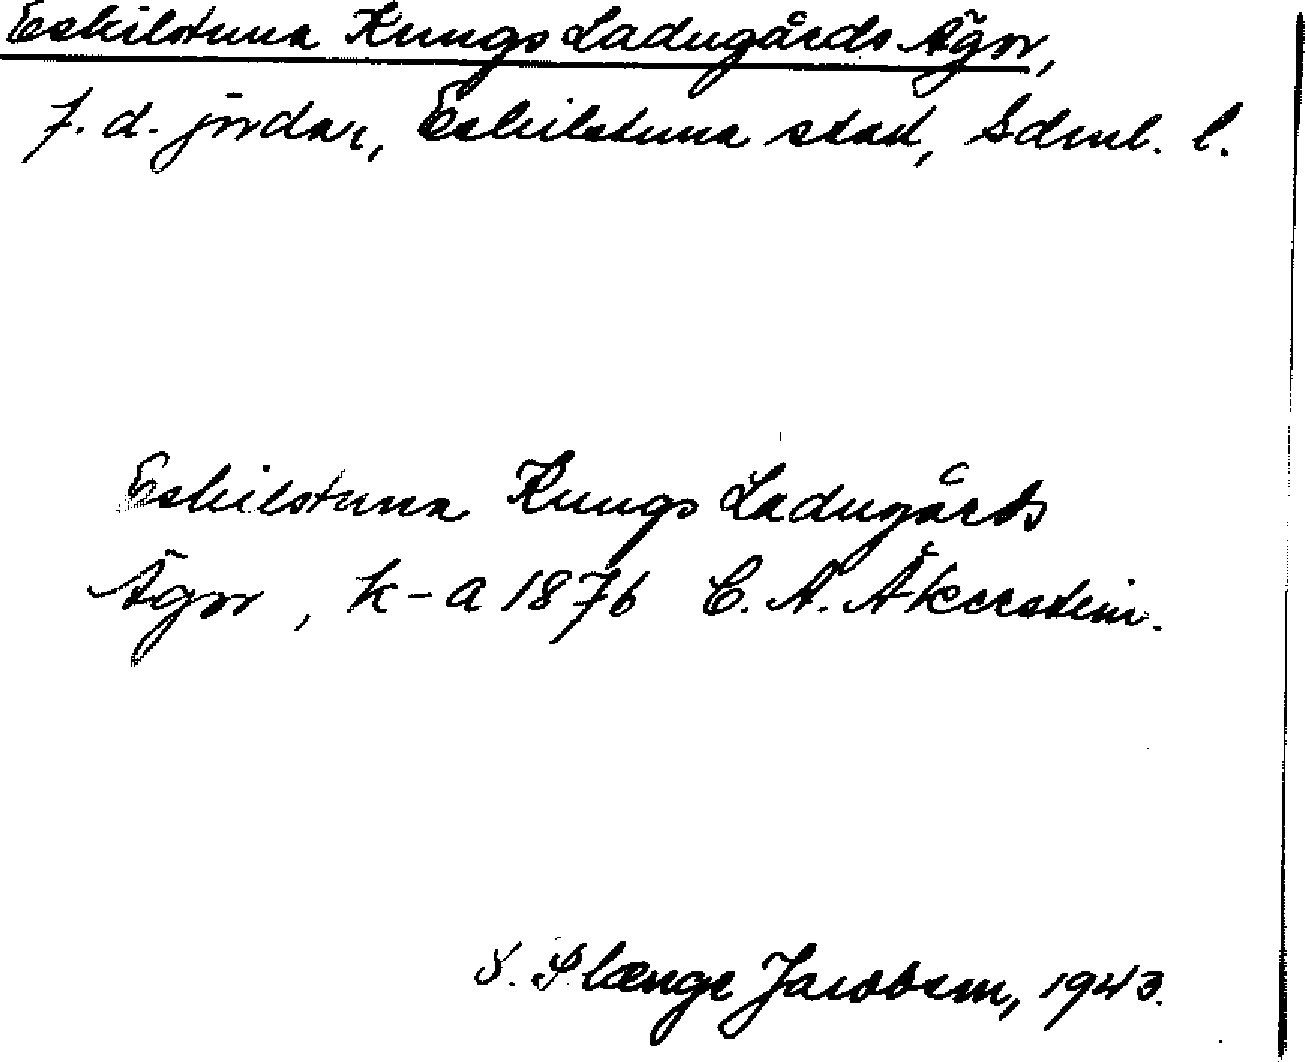 Eskilstuna Kungs Ladugårds Ägor,
f. d. jordar, Eskilstuna stad, Sdml. l.
Eskilstuna Kungs Ladugårds
Ägor, k-a 1876 C. A. Åkerstein.
S. Plænge Jacobson, 1943.